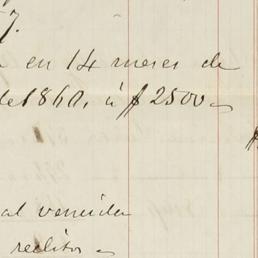 7.
en 14 meses de
de 1860, á $ 2500
al vencida
reditos